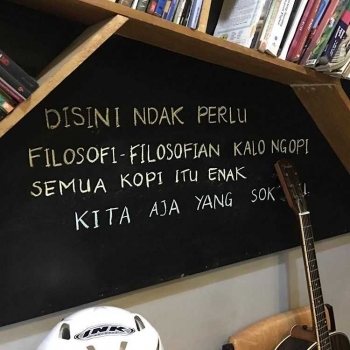 DISINI NDAK PERLU
FILOSOFI-FILOSOFIAN KALO NGOPI
SEMUA KOPI ITU ENAK
KITA AJA YANG SOK
INK